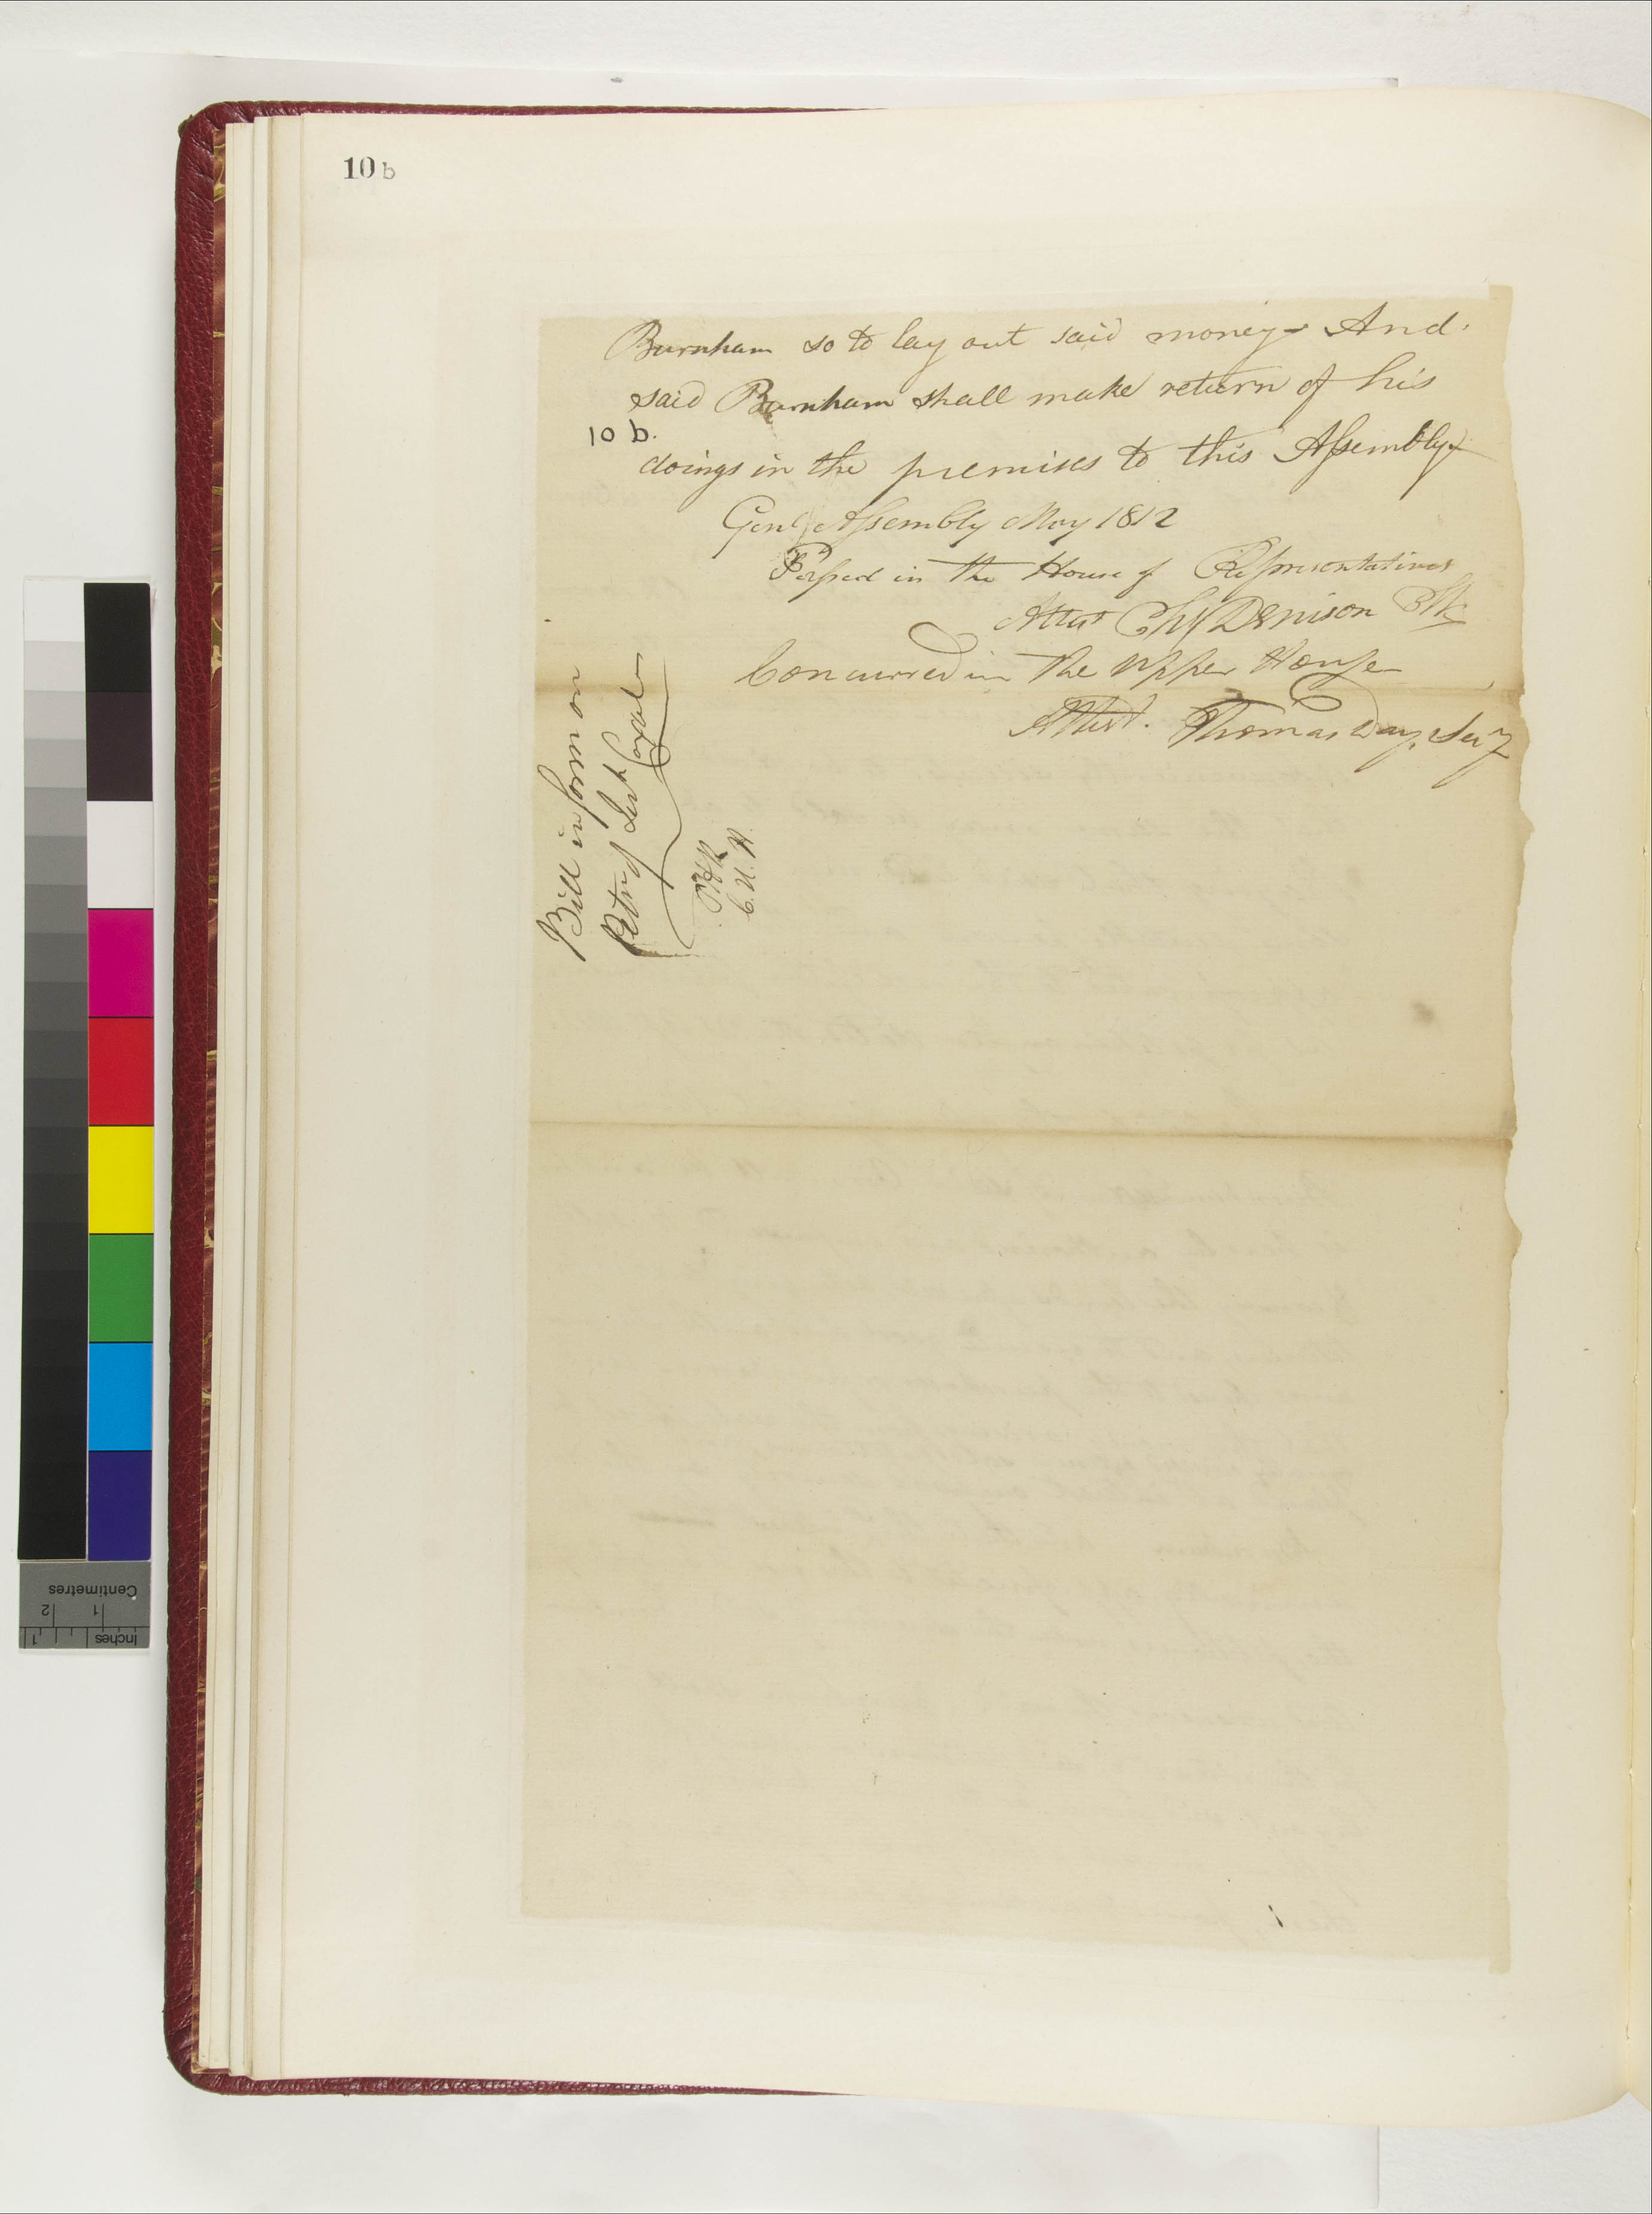 10b
Burnham so to lay out said money - And
said Burnham shall make return of his
10 b.
doings in the premises to this Assembly
Genl Assembly May 1812
Passed in the House of Representatives
Attest Chs Denison Clk
Concurred in the Upper House
Attest. Thomas Day, Secy
Bill in form on
Petn of
P.H.R
C.U.H.
Centimetres
1 2
Inches
1